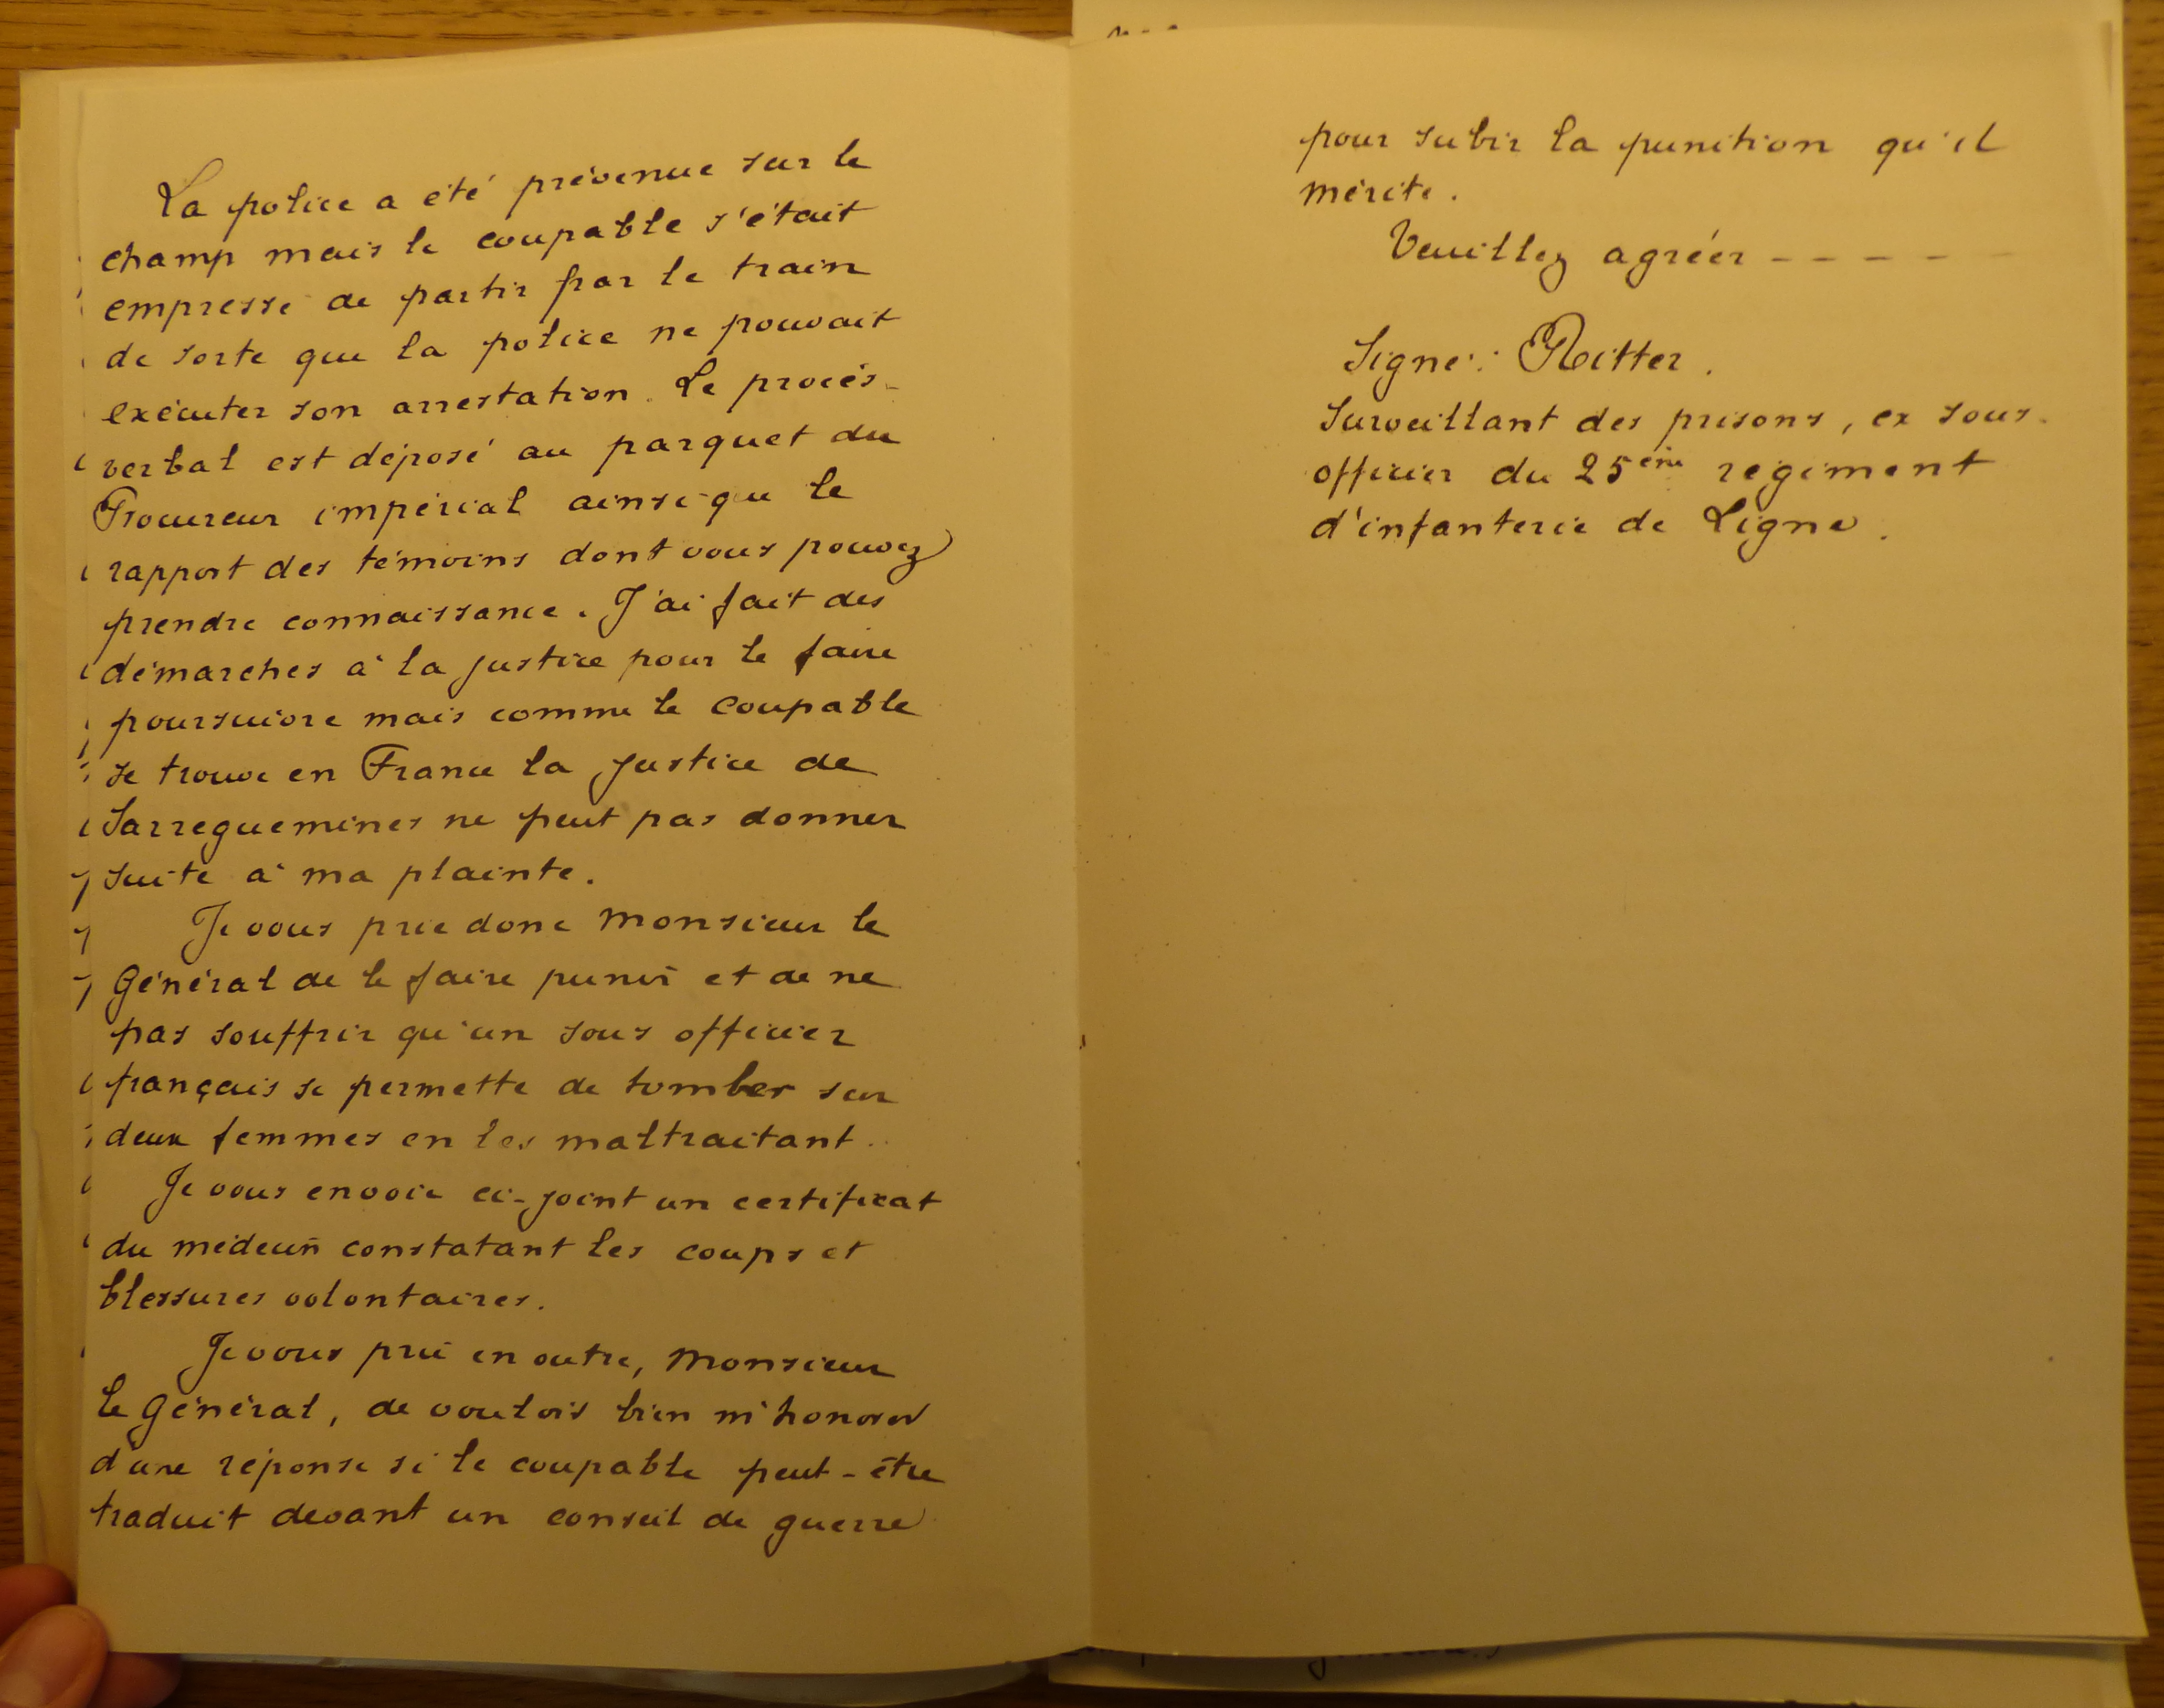 La police a été prévenue sur le
champ mais le coupable s'était
empressé de partir par le train
de sorte que la police ne pouvait
exécuter son arrestation. Le procès-
verbal est déposé au parquet du
Procureur impérial ainsi que le
rapport des témoins dont vous pouvez
prendre connaissance. J'ai fait des
démarches à la justice pour le faire
poursuivre mais comme le coupable
se trouve en France la justice de
Sarreguemines ne peut pas donner
suite à ma plainte.
Je vous prie donc Monsieur le
Général de le faire punir et de ne
pas souffrir qu'un sous officier
français se permette de tomber sur
deux femmes en les maltraitant.
Je vous envoie ci-joint un certificat
du médecin constatant les coups et
blessures volontaires.
Je vous prie en outre, Monsieur
le Général, de vouloir bien m'honorer
d'une réponse si le coupable peut-être
traduit devant un conseil de guerre
pour subir la punition qu'il
mérite.
Veuillez agréer - - - - -
Signé: Ritter.
Surveillant des prisons, ex sous-
officier du 25ème régiment
d'infanterie de Ligne.